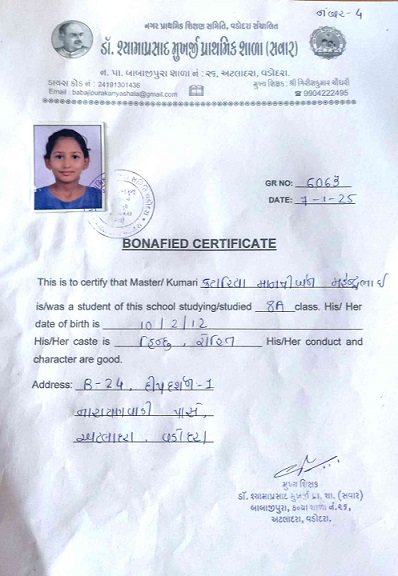 નંબર-4
નગર પ્રાથમિક શિક્ષણ સમિતિ, વડોદરા સંચાલિત
ડૉ. શ્યામાપ્રસાદ મુખર્જી પ્રાથમિક શાળા (સવાર)
ન. પા. બાબાજીપુરા શાળા નં : ૨૬, અટલાદરા, વડોદરા.
ડાયસ કોડ નં : 24191301436
મુખ્ય શિક્ષક : શ્રી ગિરીશકુમાર ચૌધરી
Email : babajipurakanyashala@gmail.com
☎ 9904222495
GR NO: 6063
DATE: 7-1-25
BONAFIED CERTIFICATE
This is to certify that Master/ Kumari
is/was a student of this school studying/studied 8A class. His/ Her
date of birth is 10/2/12
His/Her caste is હિન્દુ, રોહિત His/Her conduct and
character are good.
Address: B-24, દીપદર્શન-1
નારાયણવાડી પાસે,
અટલાદરા, વડોદરા
મુખ્ય શિક્ષક
ડૉ. શ્યામાપ્રસાદ મુખર્જી પ્રા. શા. (સવાર)
બાબાજીપુરા, કન્યા શાળા નં.૨૬,
અટલાદરા, વડોદરા.